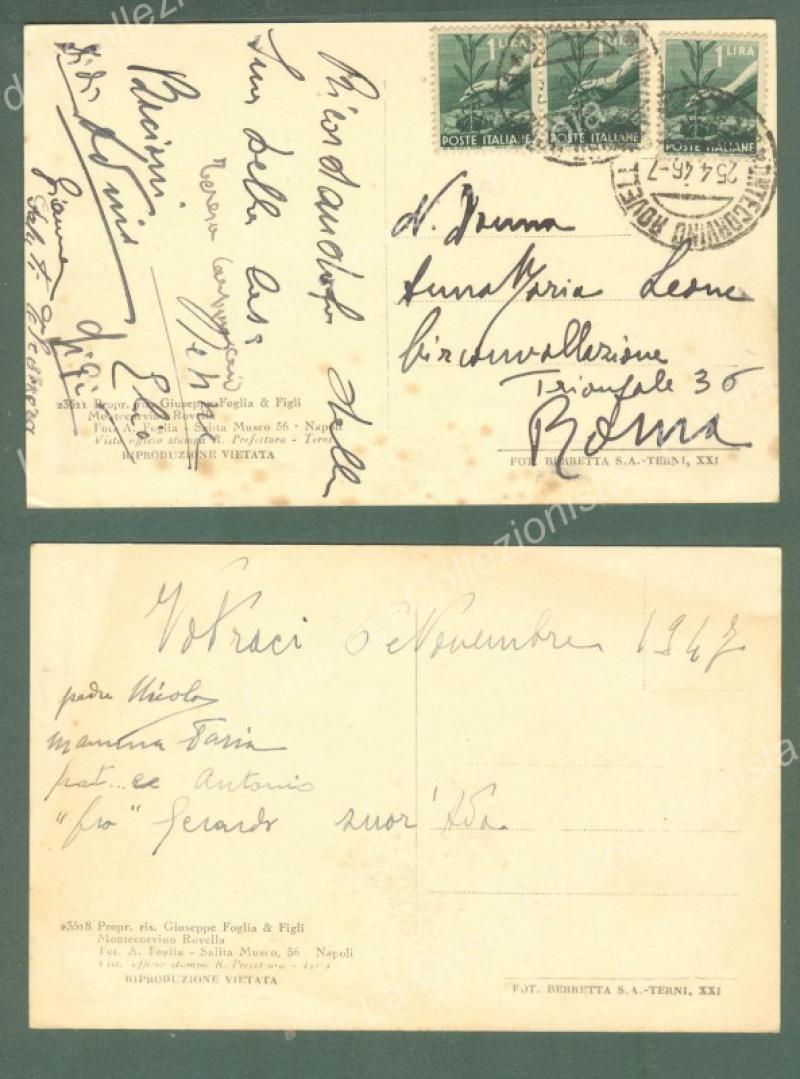 1 LIRA
POSTE ITALIANE
1 LIRA
POSTE ITALIANE
1 LIRA
POSTE ITALIANE
MONTECORVINO ROVELLA
25.4.46-7
Ricordandola dalla
sua bella casa
Teresa
Bacioni
Gianna
Gigi
N. Donna
Anna Maria Leone
Circonvallazione
Trionfale 36
Roma
23511 Propr. ris. Giuseppe Foglia & Figli
Montecorvino Rovella
Fot. A. Foglia - Salita Museo 56 - Napoli
Visto ufficio stampa R. Prefettura - Terni
RIPRODUZIONE VIETATA
FOT. BERRETTA S.A.-TERNI, XXI
Votraci 6 Novembre 1947
padre Nicola
mamma
Antonio
"fra" Gerardo suor Ada
23518 Propr. ris. Giuseppe Foglia & Figli
Montecorvino Rovella
Fot. A. Foglia - Salita Museo, 56 - Napoli
Vist. ufficio stampa R. Prefettura - Terni
RIPRODUZIONE VIETATA
FOT. BERRETTA S.A.-TERNI, XXI